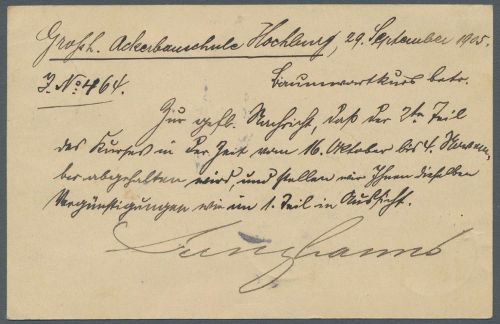 Großh. Ackerbauschule Hochburg, 29. September 1905.
J. No 464.
Baumwartkurs betr.
Zur gefl. Nachricht, daß der 2te Teil
des Kurses in der Zeit vom 16. Oktober bis 4. Novem-
ber abgehalten wird, und stellen wir Ihnen dieselben
Vergünstigungen wie im 1. Teil in Aussicht.
Junghanns